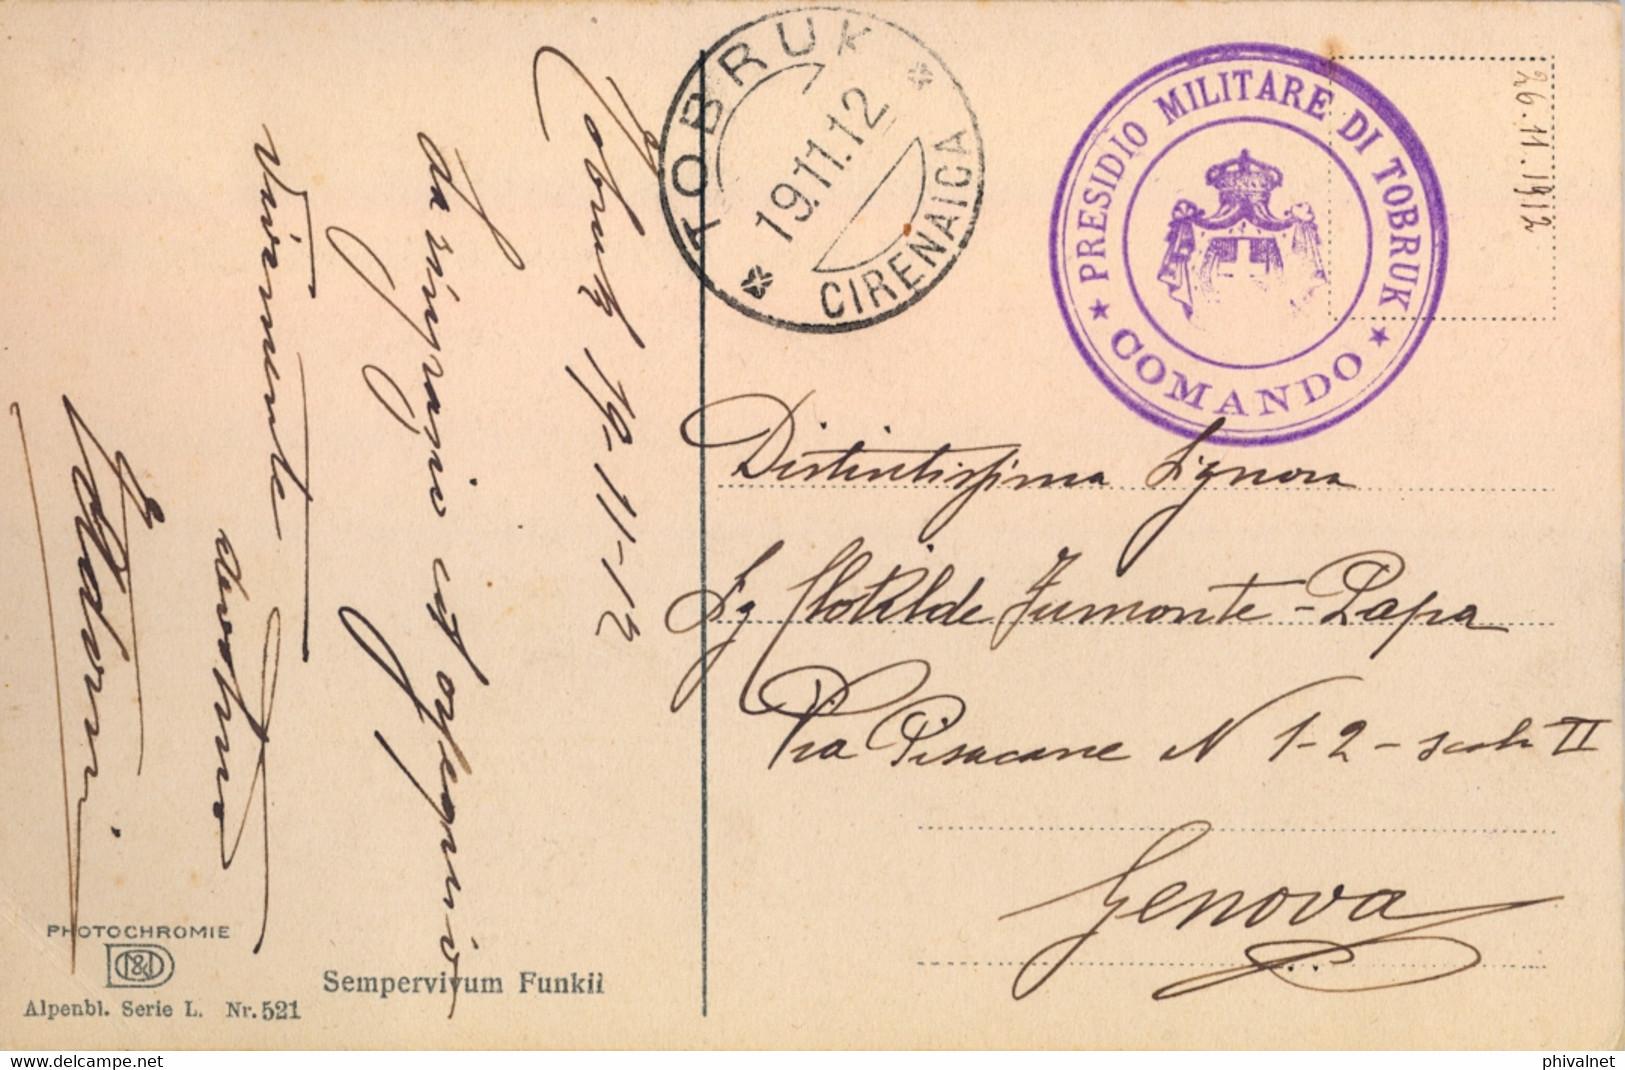 TOBRUK
19.11.12
CIRENAICA
PRESIDIO MILITARE DI TOBRUK
COMANDO
26.11.1912
Tobruk 19-11-12
La ringrazio ed ossequio
Vivamente
devotmo
Distintissima Signora
Sg Clotilde Fumonte-Papa
Via Pisacane N 1-2-scala II
Genova
PHOTOCHROMIE
Alpenbl. Serie L. Nr. 521
Sempervivum Funkii
delcampe.net
phivalnet